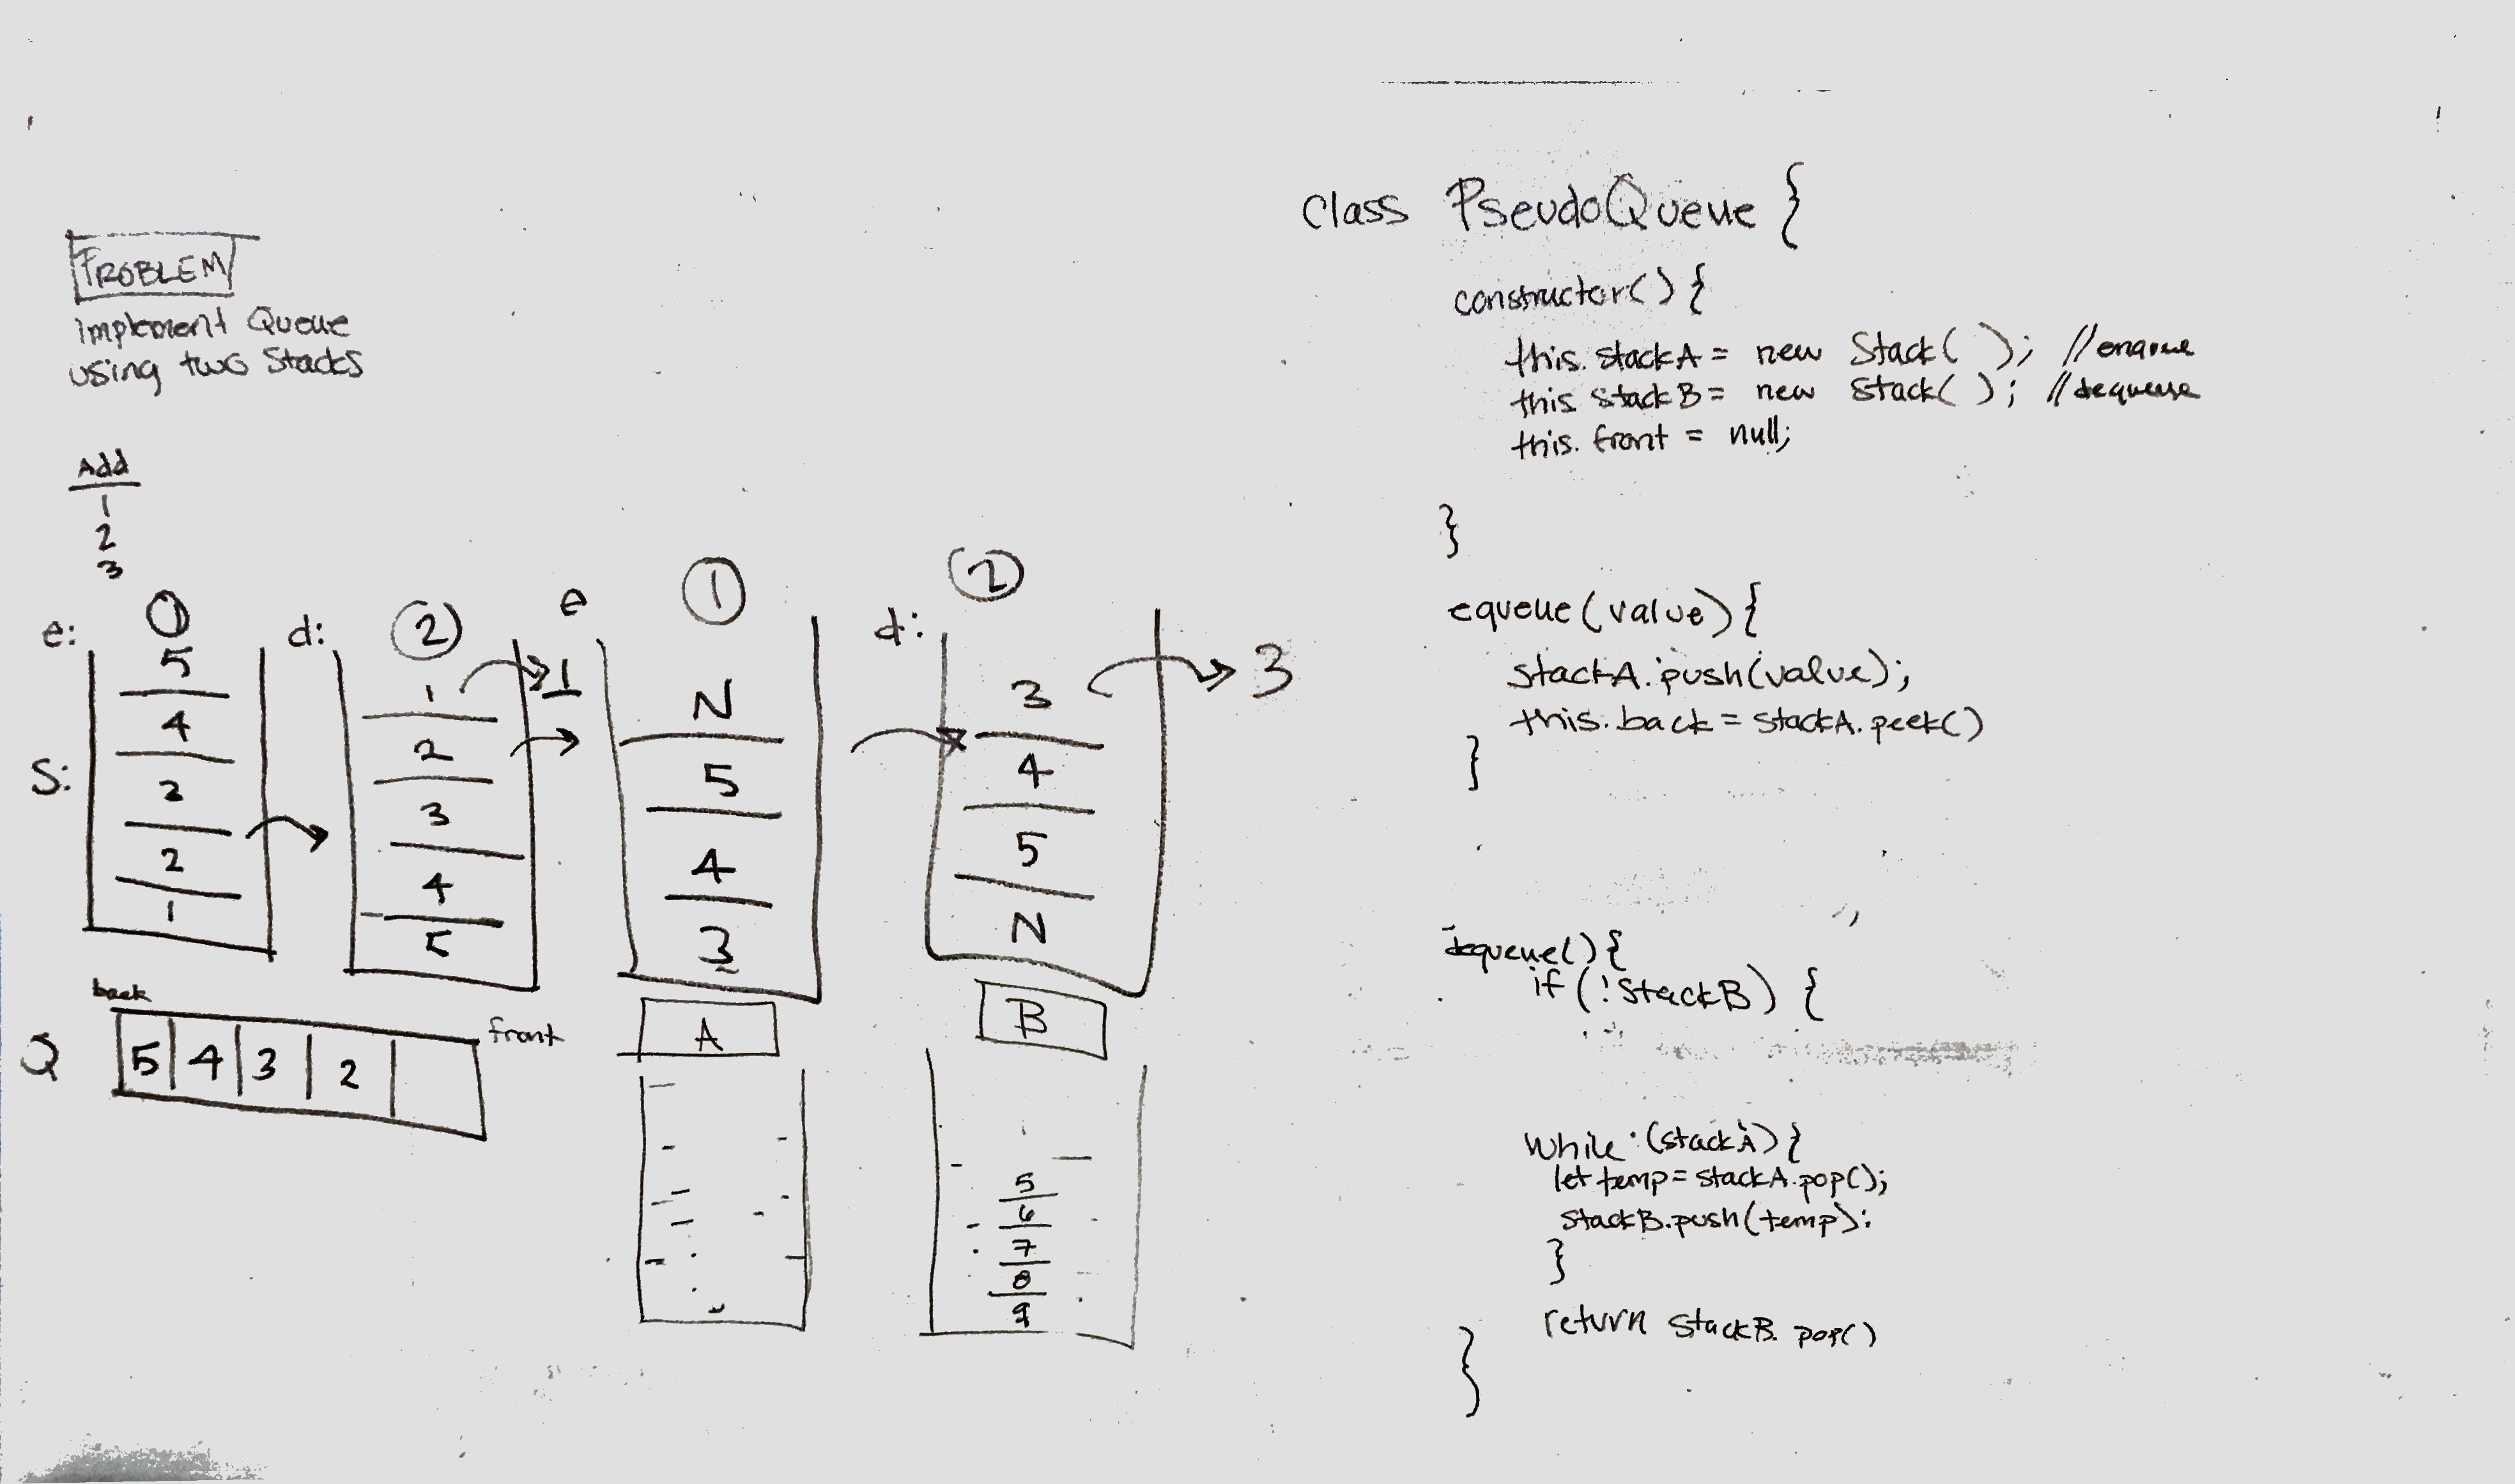 PROBLEM
Implement Queue
using two Stacks
Add
1
2
3
e: ①
5
4
3
2
1
S:
d: ②
1
2
3
4
5
1
e ①
N
5
4
3
A
d: ②
3
4
5
N
B
3
back
front
Q 5 4 3 2
5
6
7
8
9
class PseudoQueue {
constructor() {
this.stackA = new Stack( ); //enqueue
this stackB = new Stack( ); //dequeue
this.front = null;
}
equeue(value) {
stackA.push(value);
this.back = stackA.peek()
}
dequeue() {
if (!stackB) {
while (stackA) {
let temp = stackA.pop();
stackB.push(temp);
}
return stackB.pop()
}